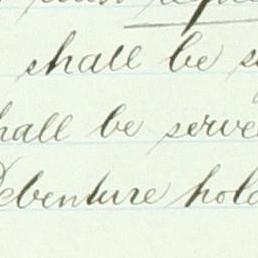 shall be
shall be serve
Debenture hold